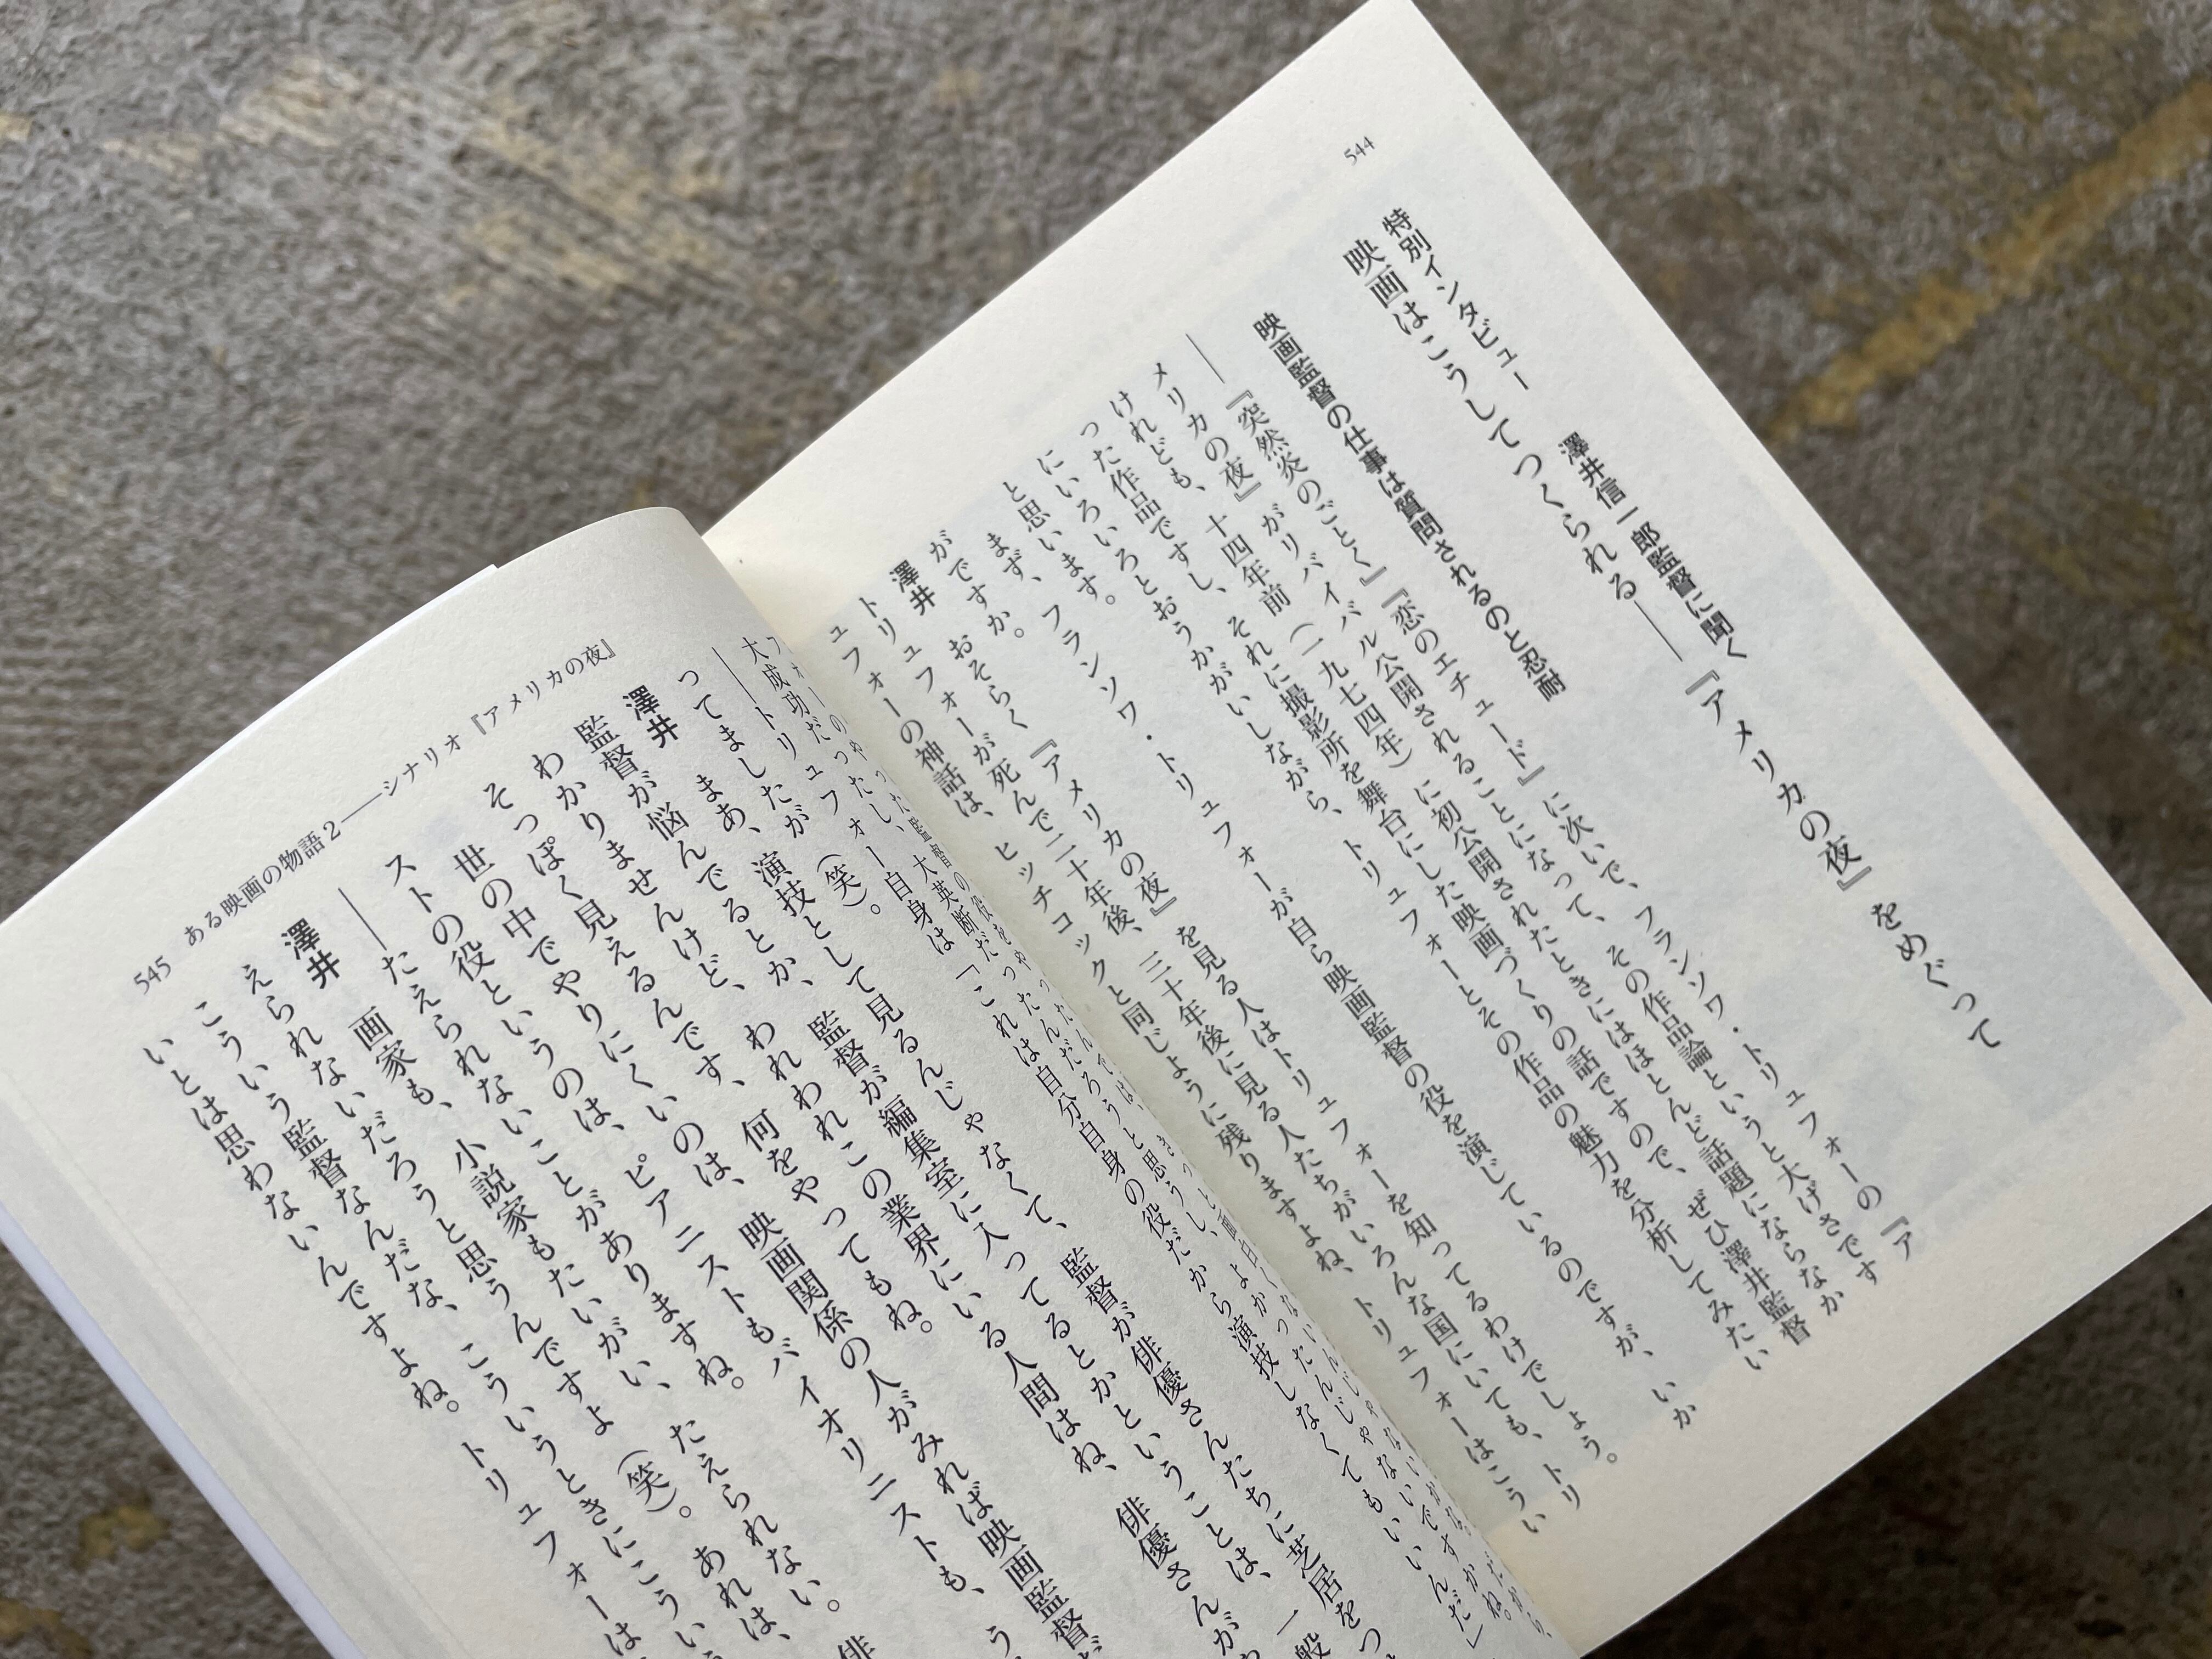 544
特別インタビュー　澤井信一郎監督に聞く
映画はこうしてつくられる――『アメリカの夜』をめぐって
映画監督の仕事は質問されるのと忍耐
――『突然炎のごとく』『恋のエチュード』に次いで、フランソワ・トリュフォーの『ア
メリカの夜』がリバイバル公開されることになって、その作品論というと大げさです
けれども、十四年前（一九七四年）に初公開されたときにはほとんど話題にならなか
った作品ですし、それに撮影所を舞台にした映画づくりの話ですので、ぜひ澤井監督
にいろいろとおうかがいしながら、トリュフォーとその作品の魅力を分析してみたい
と思います。
まず、フランソワ・トリュフォーが自ら映画監督の役を演じているのですが、いか
がですか。
澤井　おそらく『アメリカの夜』を見る人はトリュフォーを知ってるわけでしょう。
トリュフォーが死んで二十年後、三十年後に見る人たちがいろんな国にいても、トリ
ュフォーの神話は、ヒッチコックと同じように残りますよね、トリュフォーはこうい
大成功だったし、大英断だったんだろうと思うし、よかったんじゃないですかね。
――トリュフォー自身は「これは自分自身の役だから演技しなくてもいいんだ」
ってましたが（笑）。
澤井　まあ、演技として見るんじゃなくて、監督が俳優さんたちに芝居をつ
監督が悩んでるとか、監督が編集室に入ってるとかということは、一般
わかりませんけど、われわれこの業界にいる人間はね、俳優さんが
そっぽく見えるんです、何をやってもね。
世の中でやりにくいのは、映画関係の人がみれば映画監督だ
ストの役というのは、ピアニストもバイオリニストも、う
――たえられないことがありますね。
澤井　画家も、小説家もたいがい、たえられない。俳
えられないだろうと思うんですよ（笑）。あれは、
こういう監督なんだな、こういうときにこうい
いとは思わないんですよね。トリュフォーは
545　ある映画の物語2――シナリオ『アメリカの夜』